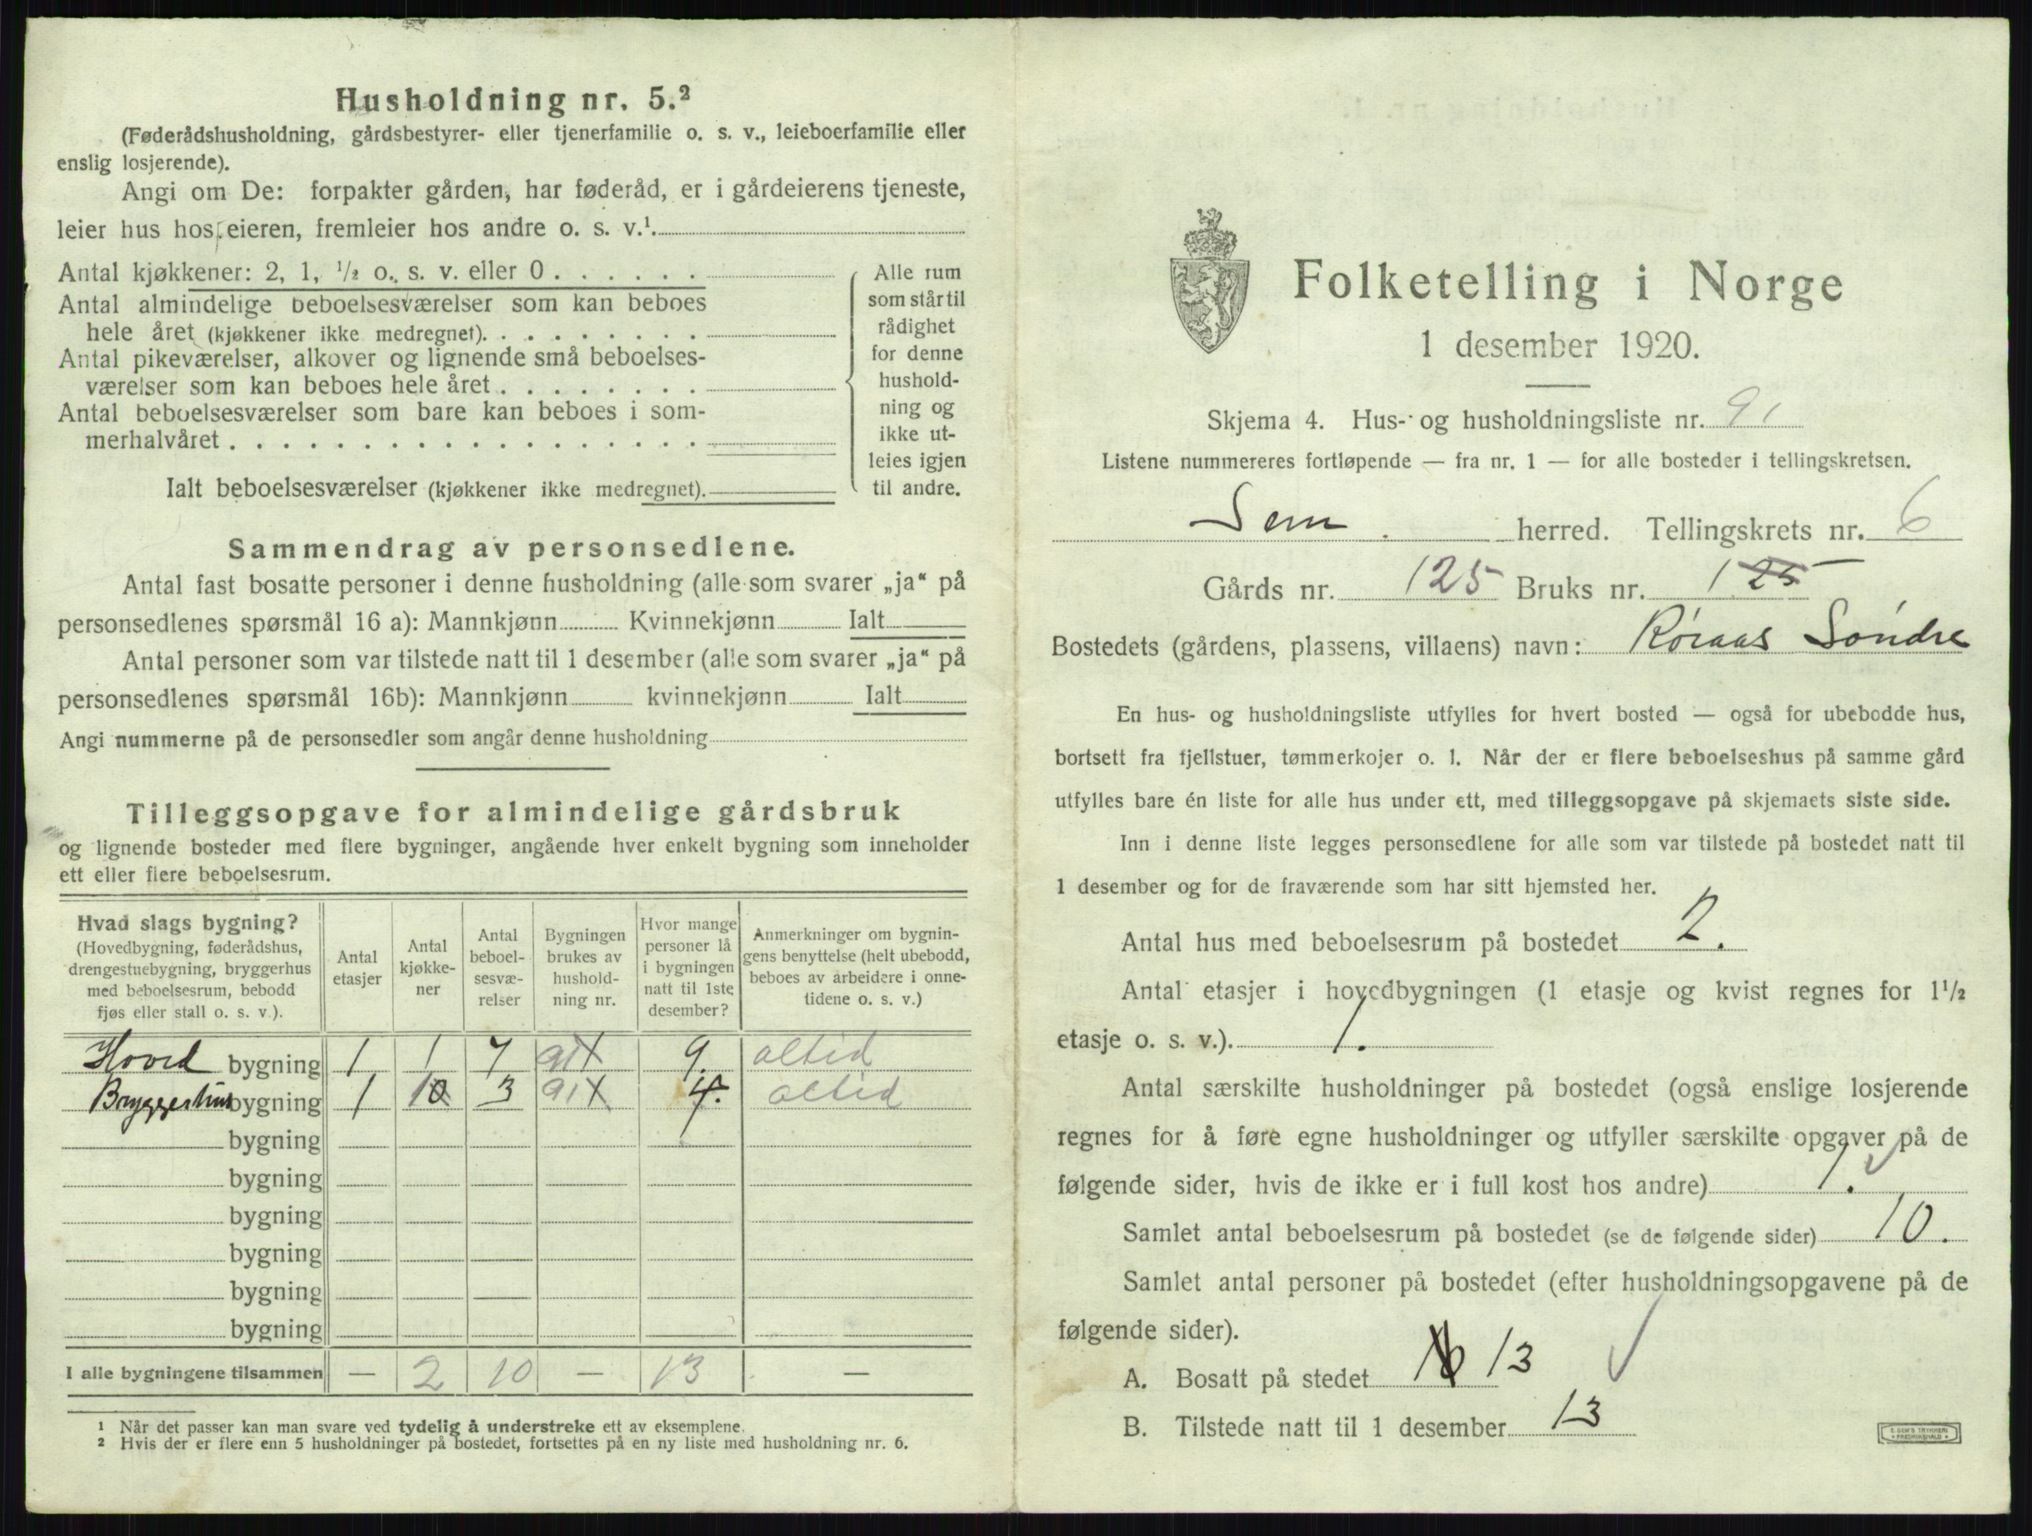 Husholdning nr. 5.²
(Føderådshusholdning, gårdsbestyrer- eller tjenerfamilie o. s. v., leieboerfamilie eller
enslig losjerende).
Angi om De: forpakter gården, har føderåd, er i gårdeierens tjeneste,
leier hus hos eieren, fremleier hos andre o. s. v.¹
Antal kjøkkener: 2, 1, ½ o. s. v. eller 0
Antal almindelige beboelsesværelser som kan beboes
hele året (kjøkkener ikke medregnet).
Antal pikeværelser, alkover og lignende små beboelses-
værelser som kan beboes hele året
Antal beboelsesværelser som bare kan beboes i som-
merhalvåret
Ialt beboelsesværelser (kjøkkener ikke medregnet).
Alle rum
som står til
rådighet
for denne
hushold-
ning og
ikke ut-
leies igjen
til andre.
Sammendrag av personsedlene.
Antal fast bosatte personer i denne husholdning (alle som svarer „ja“ på
personsedlenes spørsmål 16 a): Mannkjønn Kvinnekjønn Ialt
Antal personer som var tilstede natt til 1 desember (alle som svarer „ja“ på
personsedlenes spørsmål 16b): Mannkjønn kvinnekjønn Ialt
Angi nummerne på de personsedler som angår denne husholdning
Tilleggsopgave for almindelige gårdsbruk
og lignende bosteder med flere bygninger, angående hver enkelt bygning som inneholder
ett eller flere beboelsesrum.
Hvad slags bygning?
(Hovedbygning, føderådshus,
drengestuebygning, bryggerhus
med beboelsesrum, bebodd
fjøs eller stall o. s. v.).
Antal
etasjer
Antal
kjøkke-
ner
Antal
beboel-
sesvæ-
relser
Bygningen
brukes av
hushold-
ning nr.
Hvor mange
personer lå
i bygningen
natt til 1ste
desember?
Anmerkninger om bygnin-
gens benyttelse (helt ubebodd,
beboes av arbeidere i onne-
tidene o. s. v.)
Hoved bygning 1 1 7 91 1 9. altid
Bryggerhus bygning 1 1 0 3 91 1 4. altid
bygning
bygning
bygning
bygning
bygning
bygning
I alle bygningene tilsammen — 2 10 — 13 —
¹ Når det passer kan man svare ved tydelig å understreke ett av eksemplene.
² Hvis der er flere enn 5 husholdninger på bostedet, fortsettes på en ny liste med husholdning nr. 6.
Folketelling i Norge
1 desember 1920.
Skjema 4. Hus- og husholdningsliste nr. 91
Listene nummereres fortløpende — fra nr. 1 — for alle bosteder i tellingskretsen.
Sem herred. Tellingskrets nr. 6
Gårds nr. 125 Bruks nr. 1 25
Bostedets (gårdens, plassens, villaens) navn: Røraas Søndre
En hus- og husholdningsliste utfylles for hvert bosted — også for ubebodde hus,
bortsett fra fjellstuer, tømmerkojer o. l. Når der er flere beboelseshus på samme gård
utfylles bare én liste for alle hus under ett, med tilleggsopgave på skjemaets siste side.
Inn i denne liste legges personsedlene for alle som var tilstede på bostedet natt til
1 desember og for de fraværende som har sitt hjemsted her.
Antal hus med beboelsesrum på bostedet 2.
Antal etasjer i hovedbygningen (1 etasje og kvist regnes for 1½
etasje o. s. v.). 1.
Antal særskilte husholdninger på bostedet (også enslige losjerende
regnes for å føre egne husholdninger og utfyller særskilte opgaver på de
følgende sider, hvis de ikke er i full kost hos andre) 1.
Samlet antal beboelsesrum på bostedet (se de følgende sider) 10.
Samlet antal personer på bostedet (efter husholdningsopgavene på de
følgende sider).
A. Bosatt på stedet 13
B. Tilstede natt til 1 desember 13